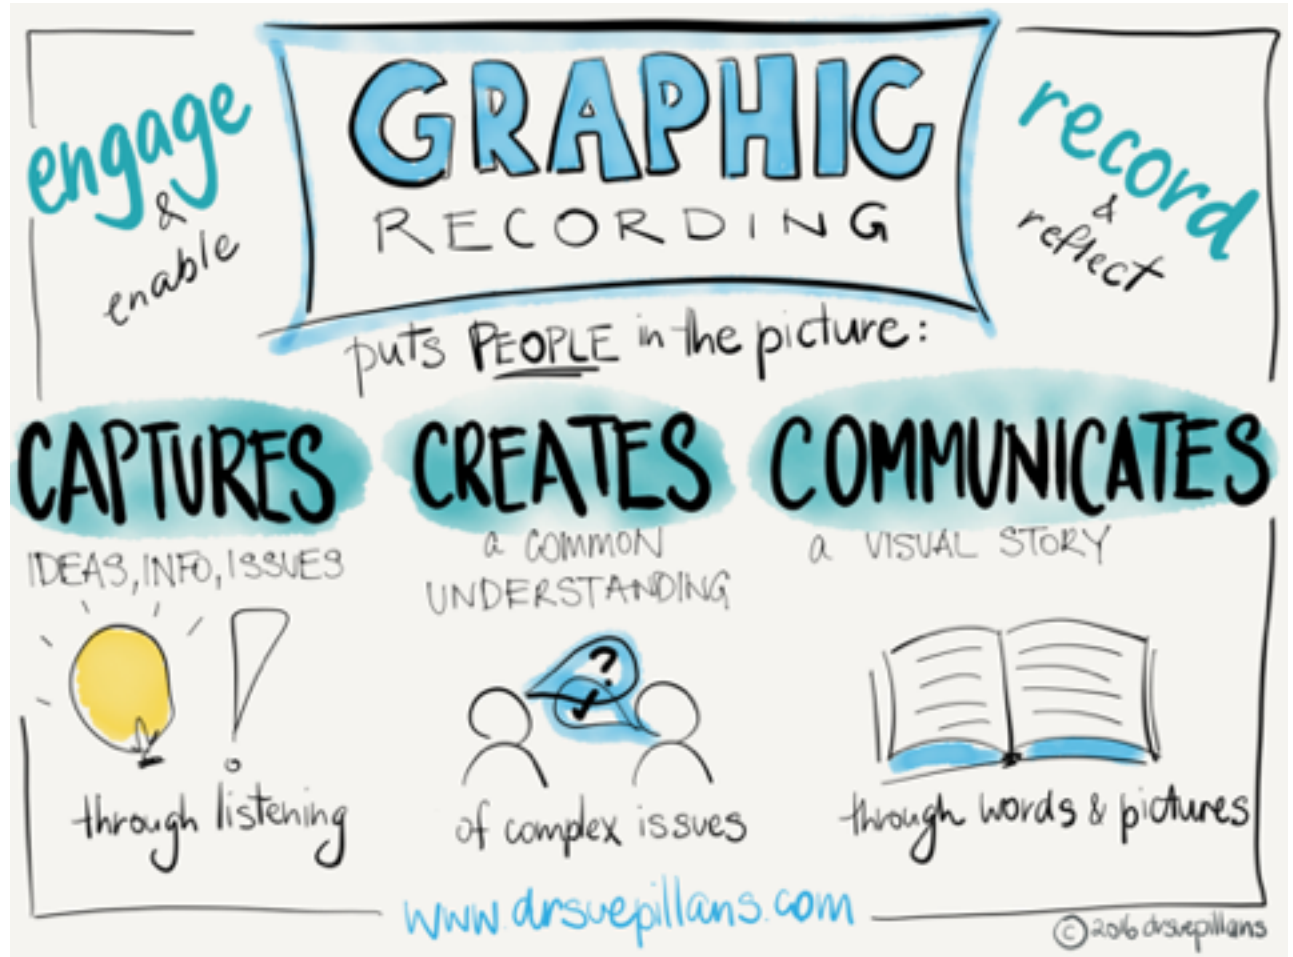 engage
&
enable
GRAPHIC
RECORDING
record
&
reflect
puts PEOPLE in the picture:
CAPTURES
IDEAS, INFO, ISSUES
through listening
CREATES
a COMMON
UNDERSTANDING
?
of complex issues
COMMUNICATES
a VISUAL STORY
through words & pictures
www.drsuepillans.com
© 2016 drsuepillans